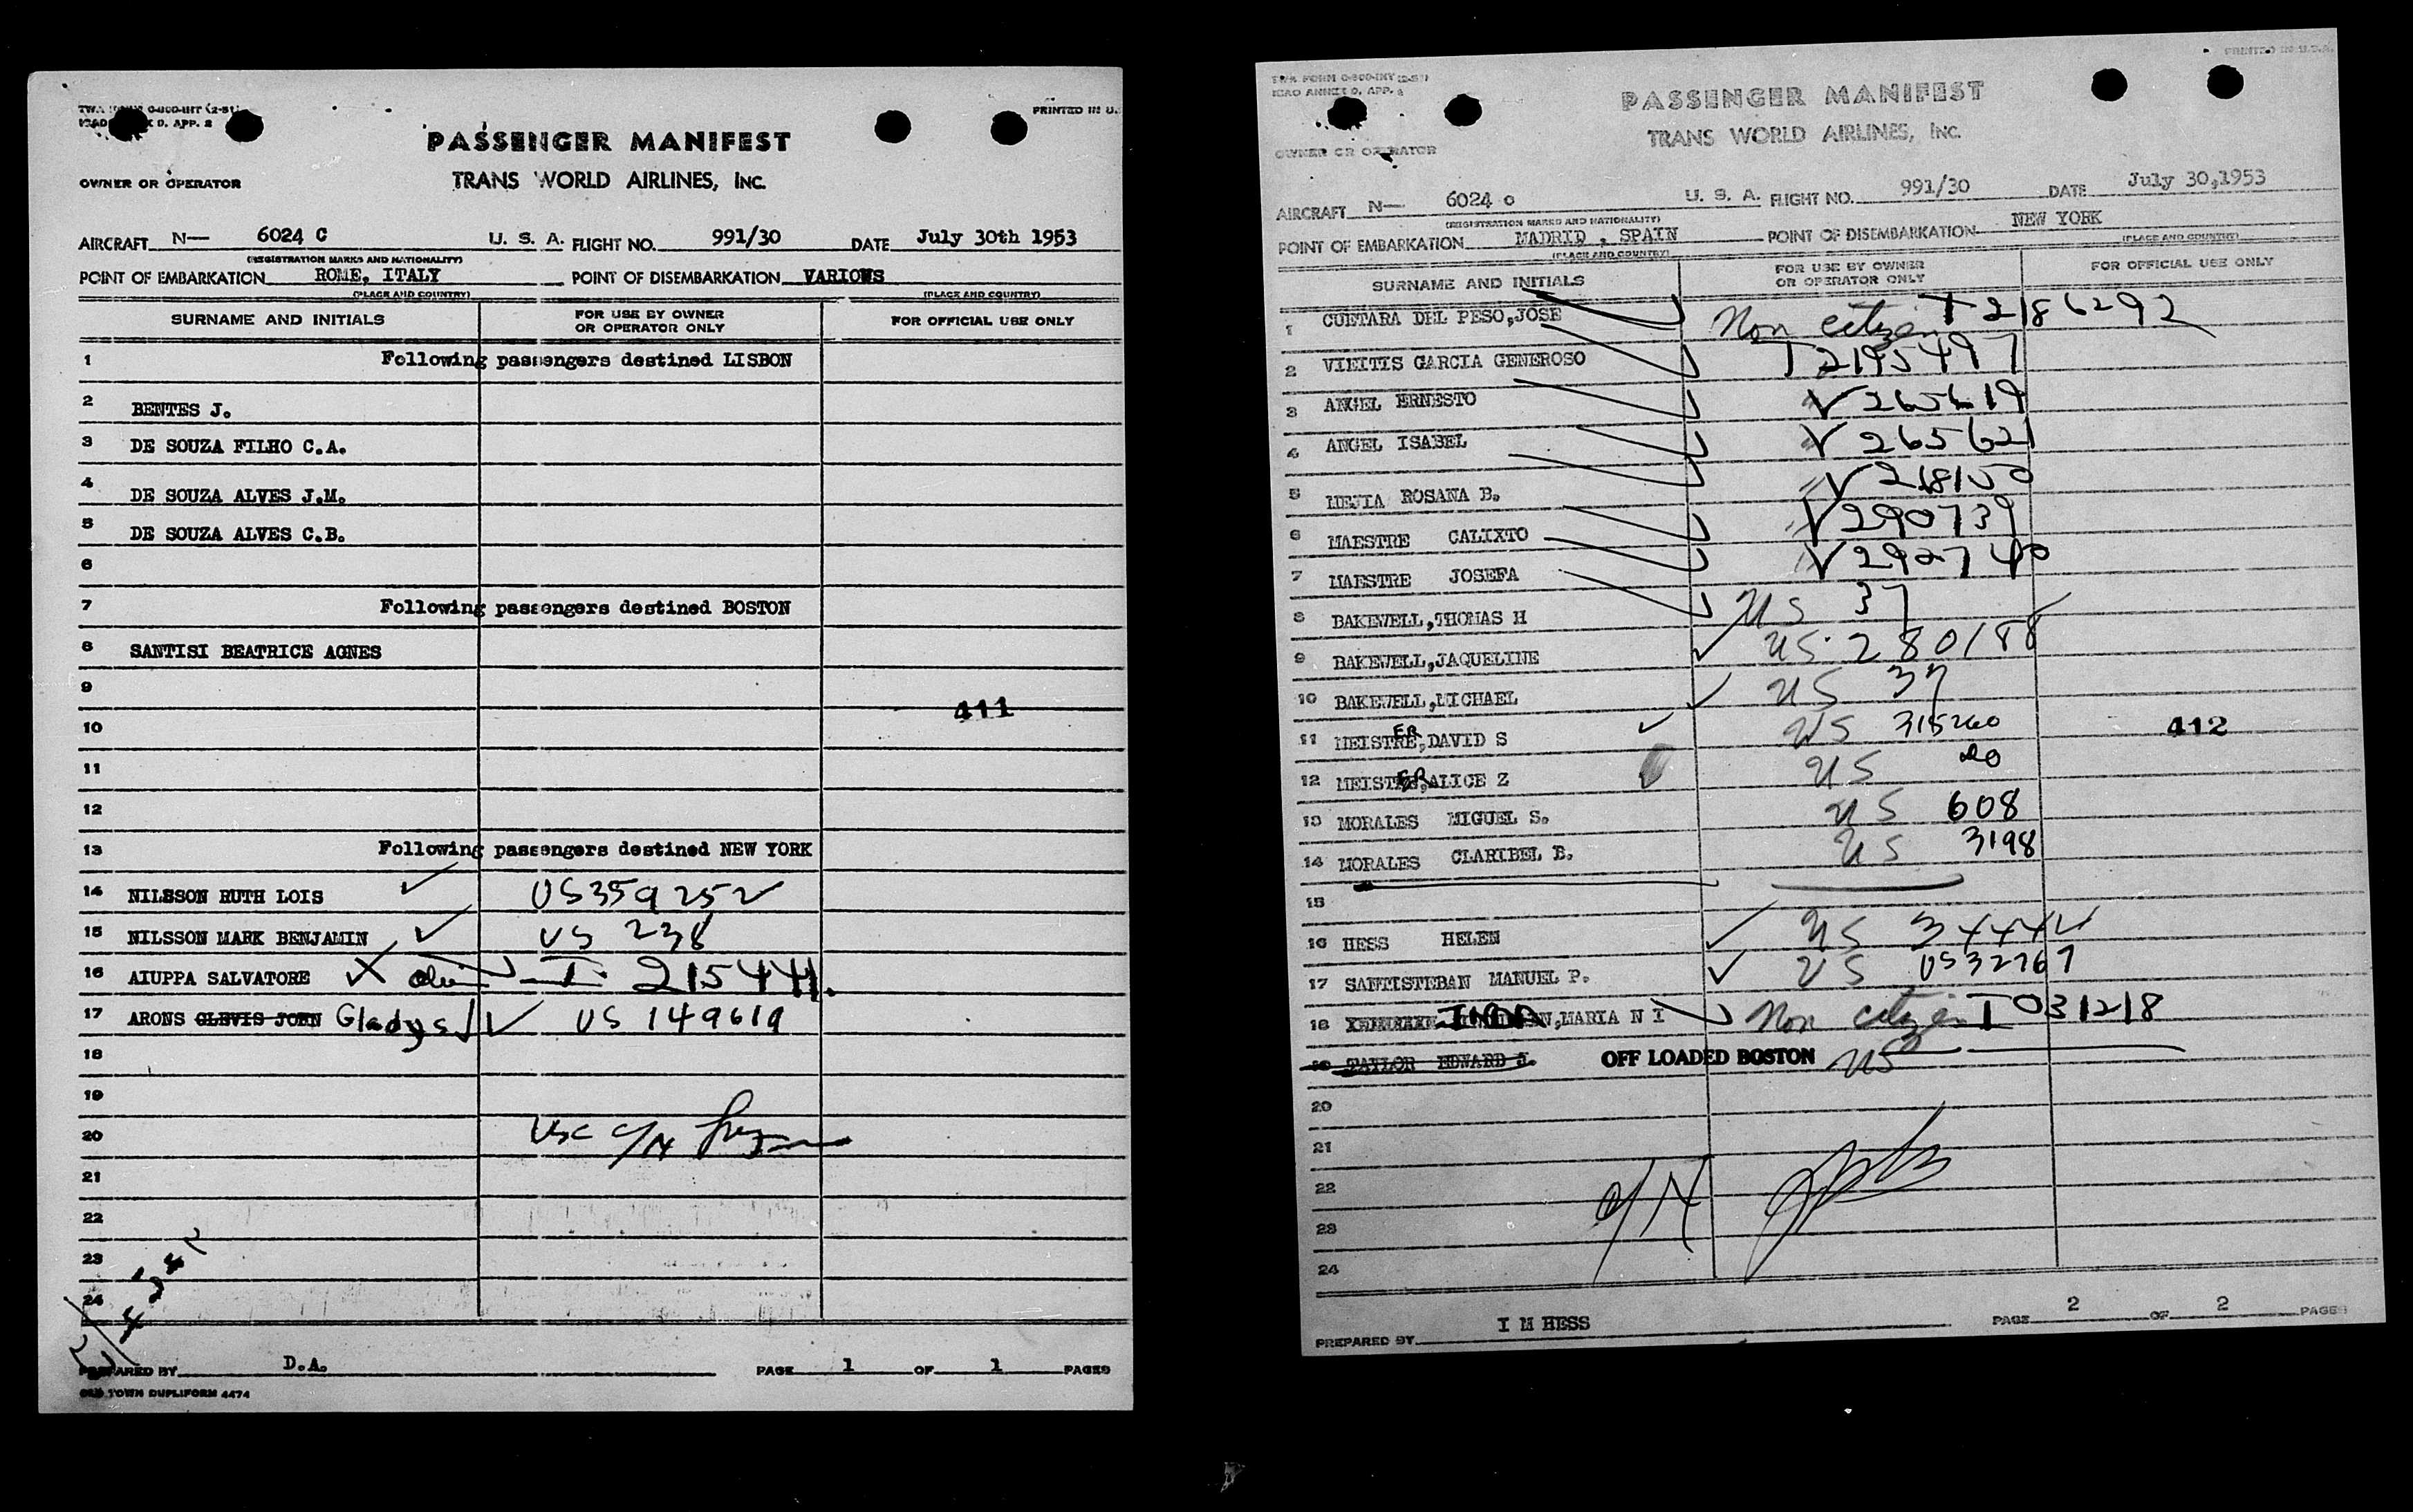 PRINTED IN U.
PASSENGER MANIFEST
OWNER OR OPERATOR
TRANS WORLD AIRLINES, INC.
AIRCRAFT N— 6024 C U. S. A. FLIGHT NO. 991/30 DATE July 30th 1953
(REGISTRATION MARKS AND NATIONALITY)
POINT OF EMBARKATION ROME, ITALY POINT OF DISEMBARKATION VARIOUS
(PLACE AND COUNTRY) (PLACE AND COUNTRY)
SURNAME AND INITIALS FOR USE BY OWNER OR OPERATOR ONLY FOR OFFICIAL USE ONLY
1 Following passengers destined LISBON
2 BENTES J.
3 DE SOUZA FILHO C.A.
4 DE SOUZA ALVES J.M.
5 DE SOUZA ALVES C.B.
6
7 Following passengers destined BOSTON
8 SANTISI BEATRICE AGNES
9
411
10
11
12
13 Following passengers destined NEW YORK
14 NILSSON RUTH LOIS ✓ US 359252
15 NILSSON MARK BENJAMIN ✓ US 238
16 AIUPPA SALVATORE T 215441
17 ARONS GLEVIS JOHN Gladys ✓ US 149619
18
19
20 USC C/N
21
22
23
24
PREPARED BY D.A. PAGE 1 OF 1 PAGES
OLD TOWN DUPLIFORM 4474
PRINTED IN U.S.A.
TWA FORM O-800-INT (2-51)
ICAO ANNEX 9, APP. 2
PASSENGER MANIFEST
OWNER OR OPERATOR
TRANS WORLD AIRLINES, INC.
AIRCRAFT N— 6024 c U. S. A. FLIGHT NO. 991/30 DATE July 30,1953
(REGISTRATION MARKS AND NATIONALITY)
POINT OF EMBARKATION MADRID , SPAIN POINT OF DISEMBARKATION NEW YORK
(PLACE AND COUNTRY) (PLACE AND COUNTRY)
SURNAME AND INITIALS FOR USE BY OWNER OR OPERATOR ONLY FOR OFFICIAL USE ONLY
1 CUETARA DEL PESO,JOSE Non citizen T 2186292
2 VIEITIS GARCIA GENEROSO T 2195497
3 ANGEL ERNESTO V 265619
4 ANGEL ISABEL V 265621
5 MEJIA ROSANA B. V 218150
6 MAESTRE CALIXTO V 290739
7 MAESTRE JOSEFA V 292740
8 BAKEWELL,THOMAS H US 37
9 BAKEWELL,JAQUELINE ✓ US 280188
10 BAKEWELL,MICHAEL ✓ US 37
11 MEISTRE,DAVID S ER ✓ US 315260
412
12 MEISTRE,ALICE Z ER US do
13 MORALES MIGUEL S. US 608
14 MORALES CLARIBEL B. US 3198
15
16 HESS HELEN ✓ US 34444
17 SANTISTEBAN MANUEL P. ✓ US US32767
18 ,MARIA N I Non citizen T 031218
19 TAYLOR EDWARD J. OFF LOADED BOSTON US
20
21
22 C/N
23
24
PREPARED BY I M HESS PAGE 2 OF 2 PAGES